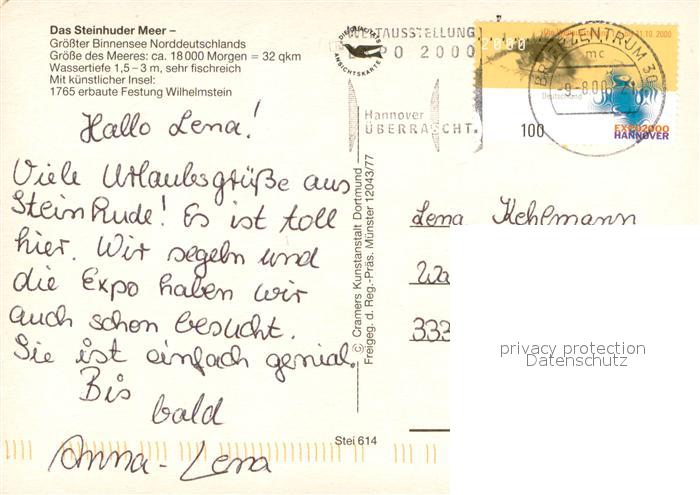 Das Steinhuder Meer –
Größter Binnensee Norddeutschlands
Größe des Meeres: ca. 18000 Morgen = 32 qkm
Wassertiefe 1,5–3 m, sehr fischreich
Mit künstlicher Insel:
1765 erbaute Festung Wilhelmstein
Hallo Lena!
Viele Urlaubsgrüße aus
Steinhude! Es ist toll
hier. Wir segeln und
die Expo haben wir
auch schon besucht.
Sie ist einfach genial.
Bis
bald
Anna-Lena
ANSICHTSKARTE
© Cramers Kunstanstalt Dortmund
Freigeg. d. Reg.-Präs. Münster 12043/77
Stei 614
WELTAUSSTELLUNG
EXPO 2000
Hannover
ÜBERRASCHT.
2000
31.10.2000
BRIEFZENTRUM 30
mc
-9.-8.00
Deutschland
100
EXPO2000
HANNOVER
Lena Kehlmann
333
privacy protection
Datenschutz